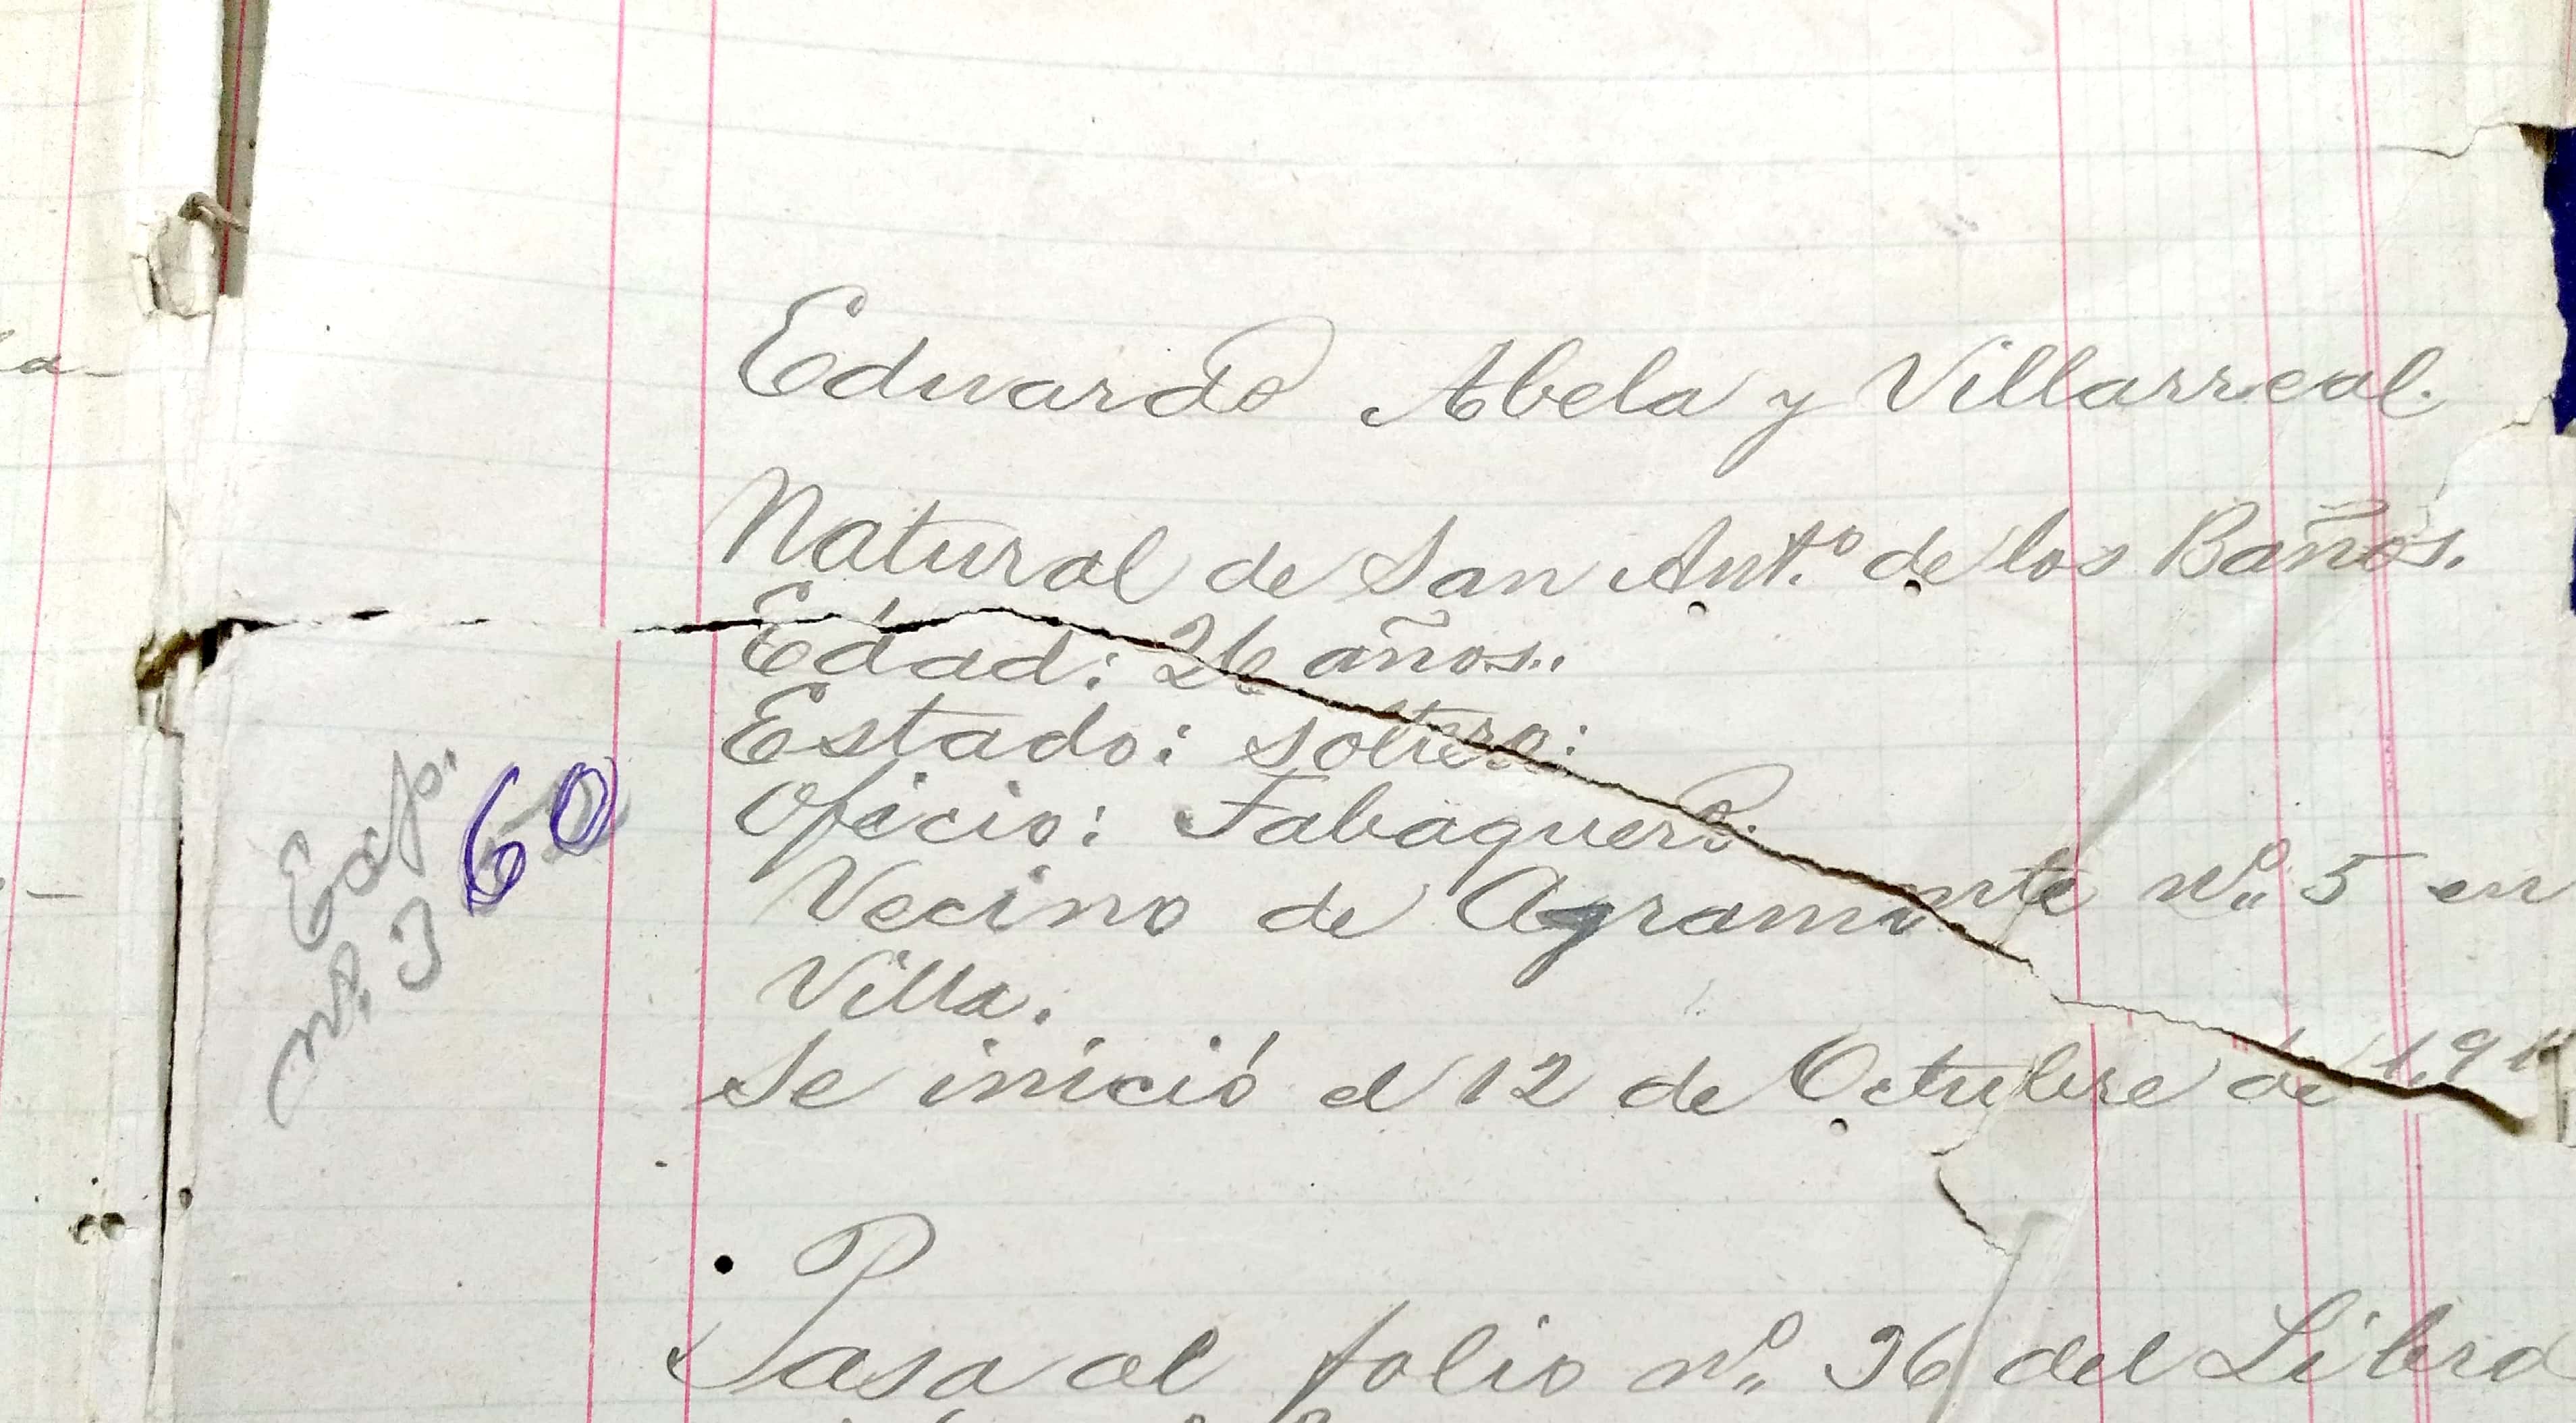 Eduardo Abela y Villarreal.
Natural de San Ant.º de los Baños.
Edad: 26 años.
Estado: soltero:
Oficio: Tabaquero.
Vecino de Agramonte nº 5 en
Villa.
Se inició el 12 de Octubre de 191
Pasa al folio nº 36 del Libro
Exp.
nº. 3
60